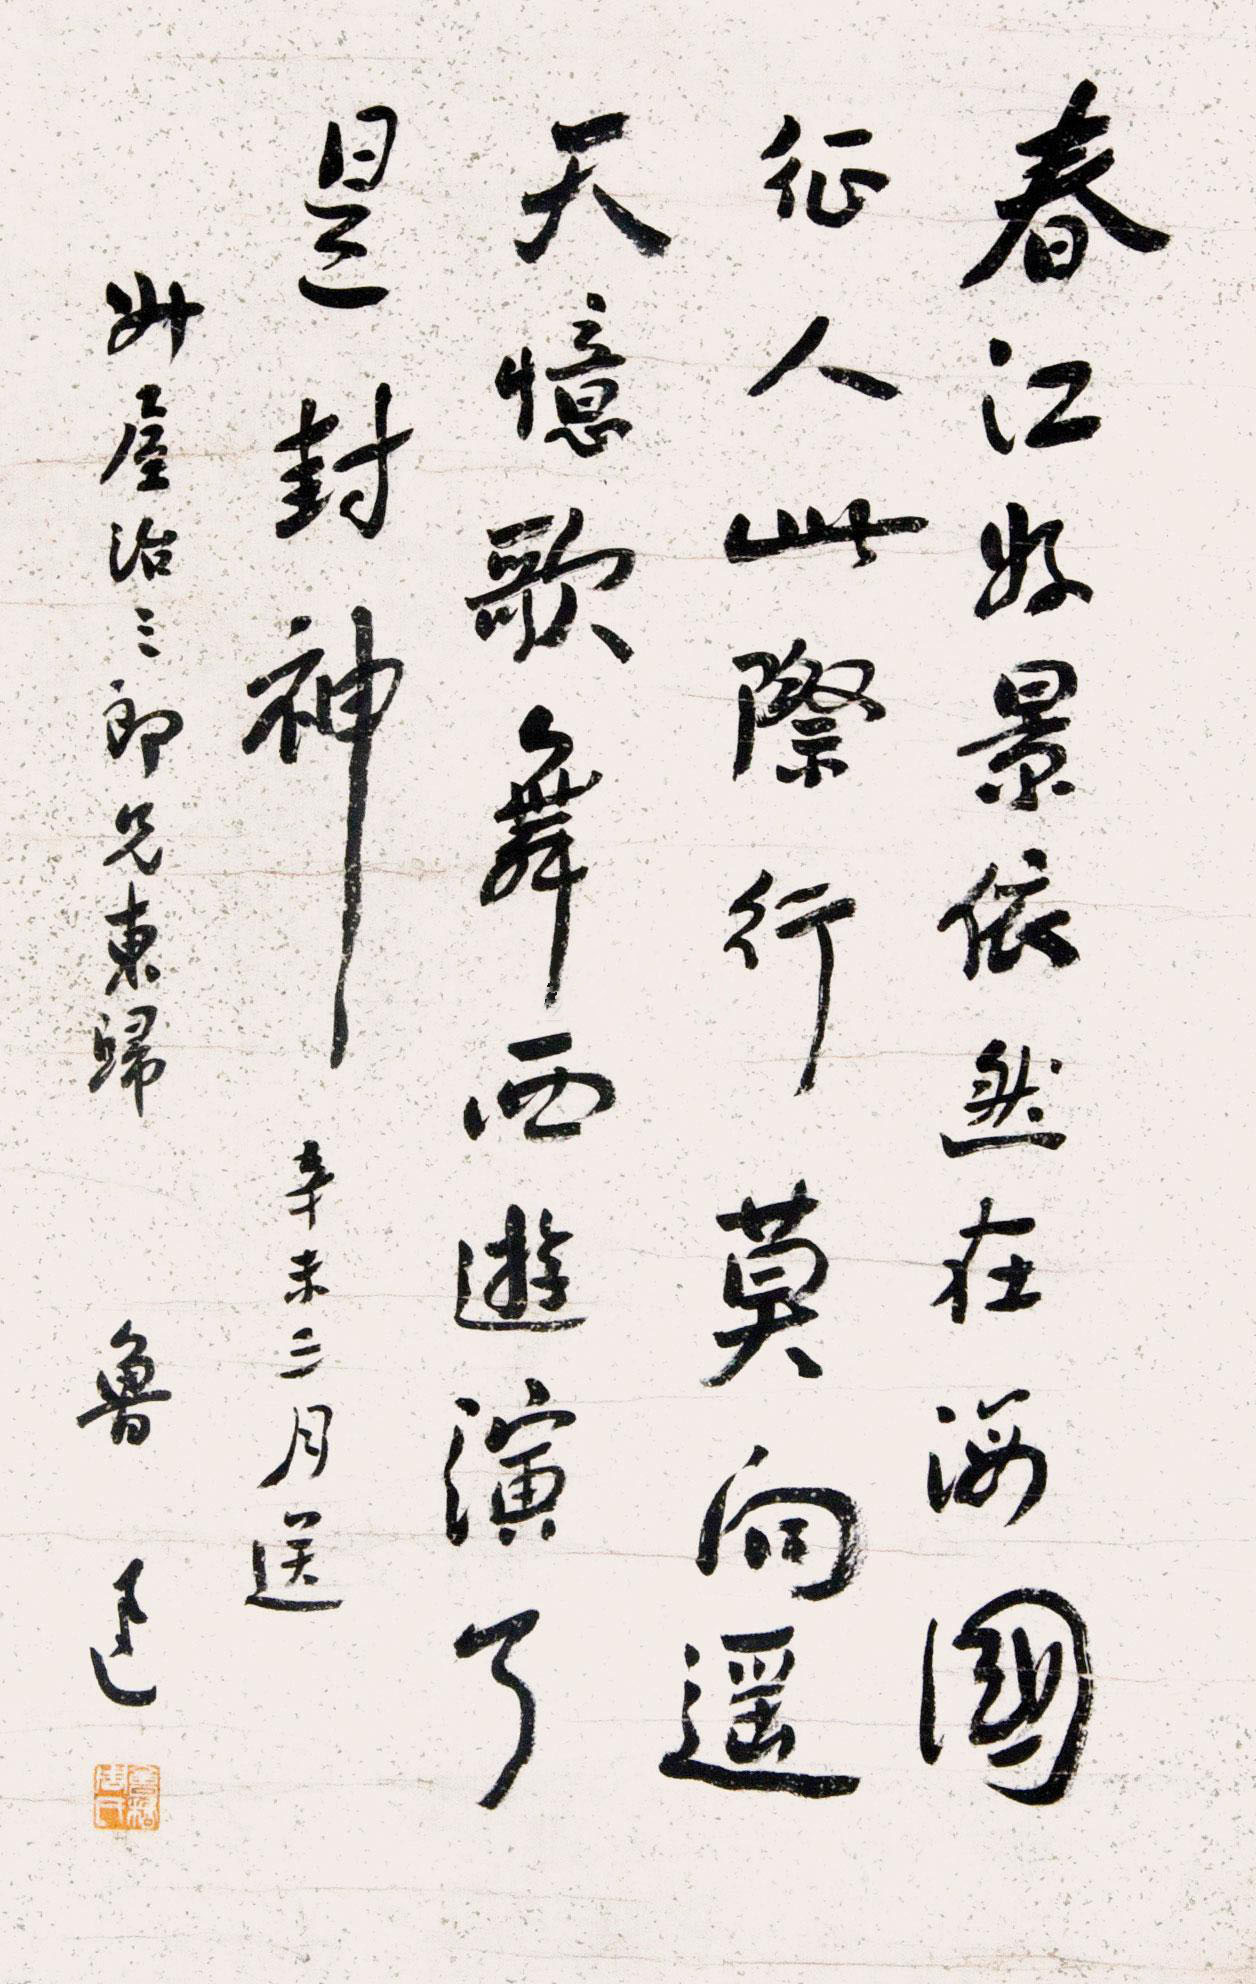 春江好景依然在海國
征人此際行莫向遥
天憶歌舞西遊演了
是封神 辛未三月送
升屋治三郎兄東歸 魯迅
會稽周氏